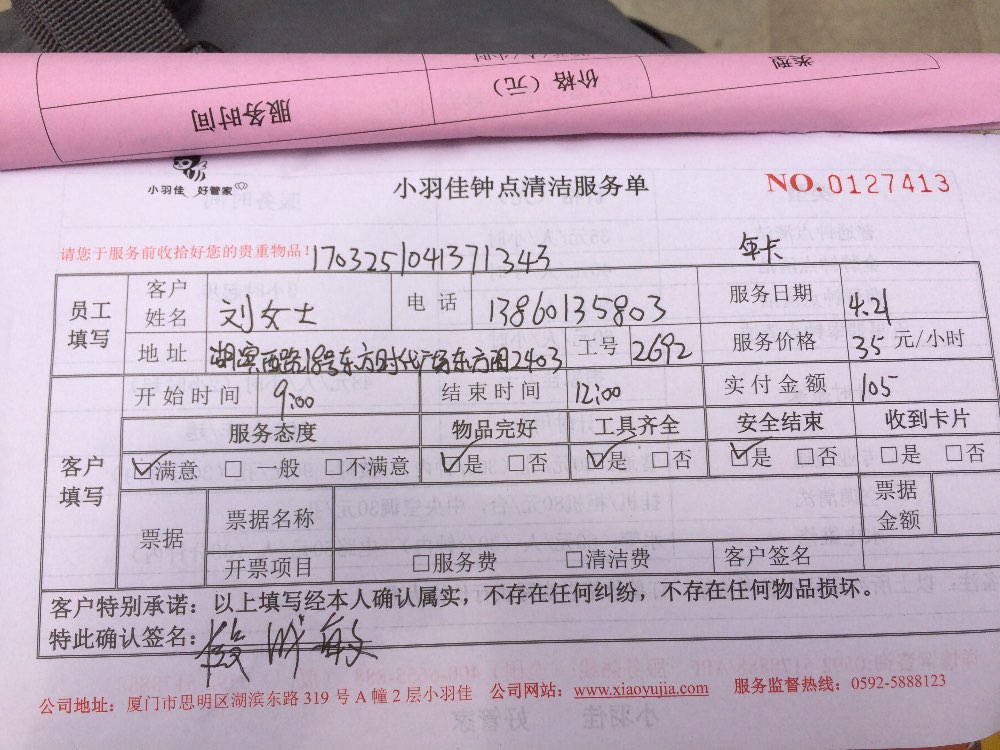 服务时间 价格（元） 类型
小羽佳 好管家
小羽佳钟点清洁服务单
NO.0127413
请您于服务前收拾好您的贵重物品！
170325104137 1343 年卡
员工填写
客户姓名 刘女士 电话 13860135803 服务日期 4.21
地址 湖宾西路18号东方时代广场东方阁2403 工号 2692 服务价格 35 元/小时
开始时间 9:00 结束时间 12:00 实付金额 105
客户填写
服务态度 物品完好 工具齐全 安全结束 收到卡片
☑满意 □一般 □不满意 ☑是 □否 ☑是 □否 ☑是 □否 □是 □否
票据 票据名称 票据金额
开票项目 □服务费 □清洁费 客户签名
客户特别承诺：以上填写经本人确认属实，不存在任何纠纷，不存在任何物品损坏。
特此确认签名：
公司地址：厦门市思明区湖滨东路 319 号 A 幢 2 层小羽佳 公司网站：www.xiaoyujia.com 服务监督热线：0592-5888123